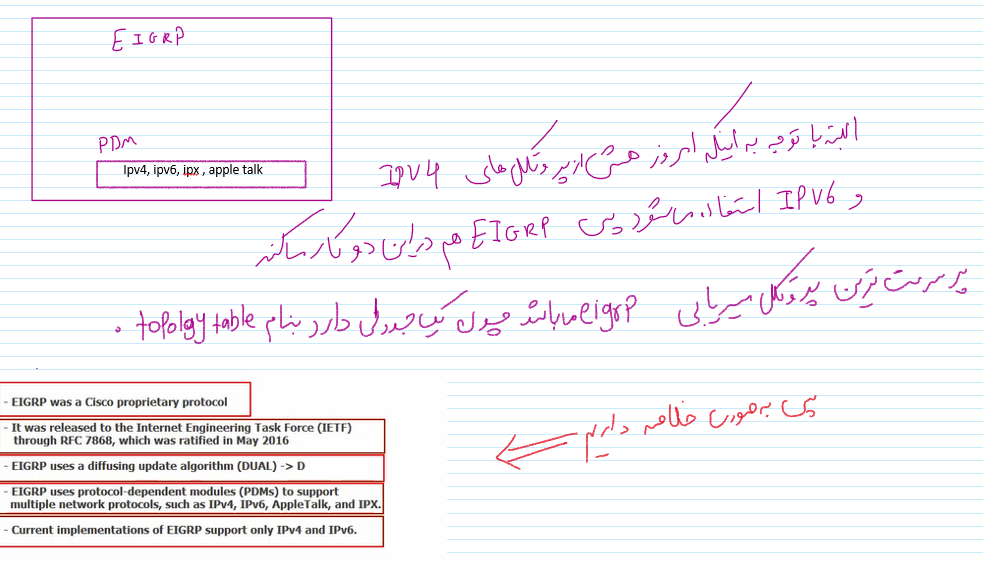 EIGRP
PDM
Ipv4, ipv6, ipx , apple talk
البته با توجه به اینکه امروز بیشتر از پروتکل های IPV4
و IPV6 استفاده میشود پس EIGRP هم در این دو کار میکند
پر سرعت ترین پروتکل مسیریابی eigrp میباشد چون یک جدولی دارد بنام topolgy table .
پس به صورت خلاصه داریم
- EIGRP was a Cisco proprietary protocol
- It was released to the Internet Engineering Task Force (IETF)
through RFC 7868, which was ratified in May 2016
- EIGRP uses a diffusing update algorithm (DUAL) -> D
- EIGRP uses protocol-dependent modules (PDMs) to support
multiple network protocols, such as IPv4, IPv6, AppleTalk, and IPX.
- Current implementations of EIGRP support only IPv4 and IPv6.